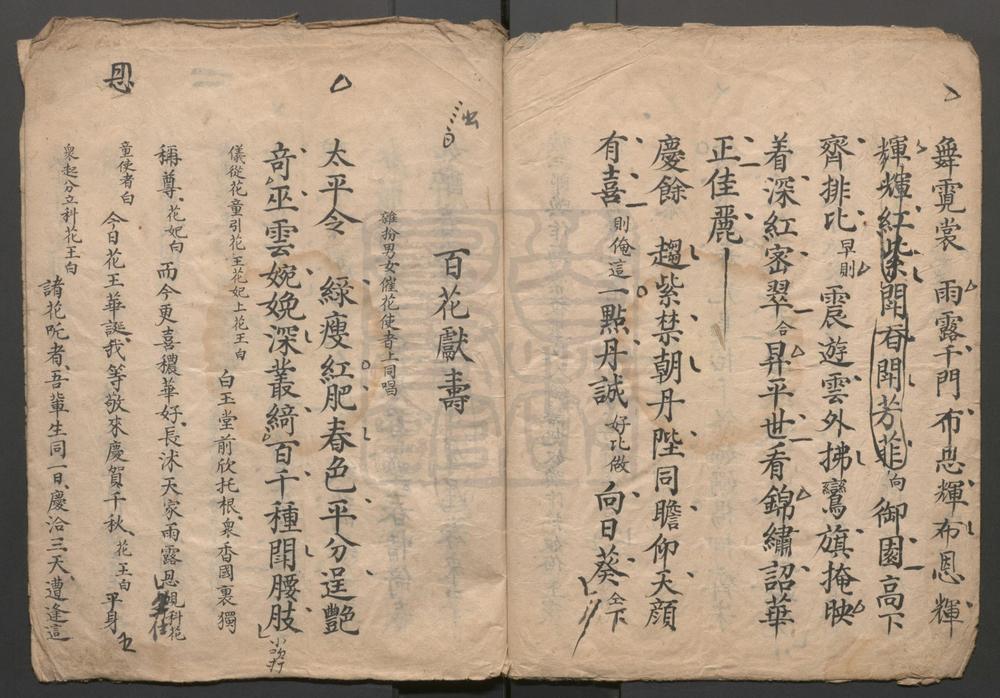 舞霓裳 雨露千門布恩輝布恩輝
輝輝紅紫鬧春閧芳菲向御園高下
齊排比早則震遊雲外拂鸞旗掩映
着深紅密翠合昇平世看錦繡韶華
正佳麗
慶餘 趨紫禁朝丹陛同瞻仰天顔
有喜則俺這一點丹誠好比做向日葵仝下
百花獻壽
雜扮男女催花使者上同唱
太平令 綠瘦紅肥春色平分逞艷
奇巫雲婉娩深叢綺百千種閗腰肢
儀從花童引花王花妃上花王白 白玉堂前欣托根衆香國裏獨
稱尊花妃白 而今更喜穠華好長沐天家雨露恩
童使者白 今日花王華誕我等敬來慶賀千秋花王白平身
恩
衆起分立科花王白 諸花听者吾輩生同一日慶洽三天遭逢這